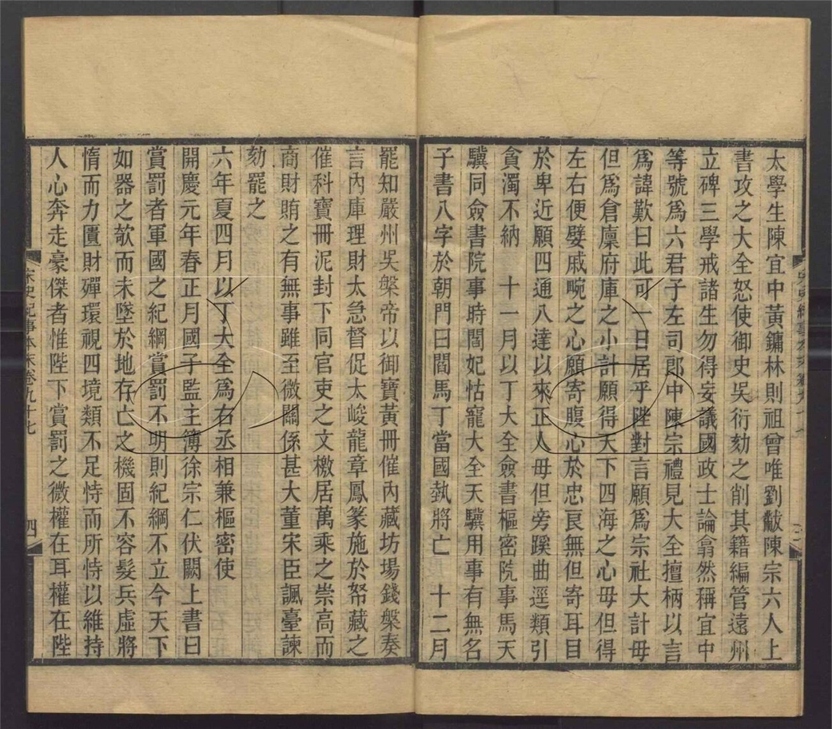 太學生陳宜中黃鏞林則祖曾唯劉黻陳宗六人上
書攻之大全怒使御史吳衍劾之削其籍編管遠州
立碑三學戒諸生勿得妄議國政士論翕然稱宜中
等號爲六君子左司郎中陳宗禮見大全擅柄以言
爲諱歎曰此可一日居乎陛對言願爲宗社大計毋
但爲倉廩府庫之小計願得天下四海之心毋但得
左右便嬖戚畹之心願寄腹心於忠良無但寄耳目
於卑近願四通八達以來正人毋但旁蹊曲逕類引
貪濁不納　十一月以丁大全僉書樞密院事馬天
驥同僉書院事時閻妃怙寵大全天驥用事有無名
子書八字於朝門曰閻馬丁當國埶將亡　十二月
罷知嚴州吳槃帝以御寶黃冊催內藏坊場錢槃奏
言內庫理財太急督促太峻龍章鳳篆施於帑藏之
催科寶冊泥封下同官吏之文檄居萬乘之崇高而
商財賄之有無事雖至微關係甚大董宋臣諷臺諫
劾罷之
六年夏四月以丁大全爲右丞相兼樞密使
開慶元年春正月國子監主簿徐宗仁伏闕上書曰
賞罰者軍國之紀綱賞罰不明則紀綱不立今天下
如器之欹而未墜於地存亡之機固不容髮兵虛將
惰而力匱財殫環視四境類不足恃而所恃以維持
人心奔走豪傑者惟陛下賞罰之微權在耳權在陛
宋史紀事本末卷九十七
四